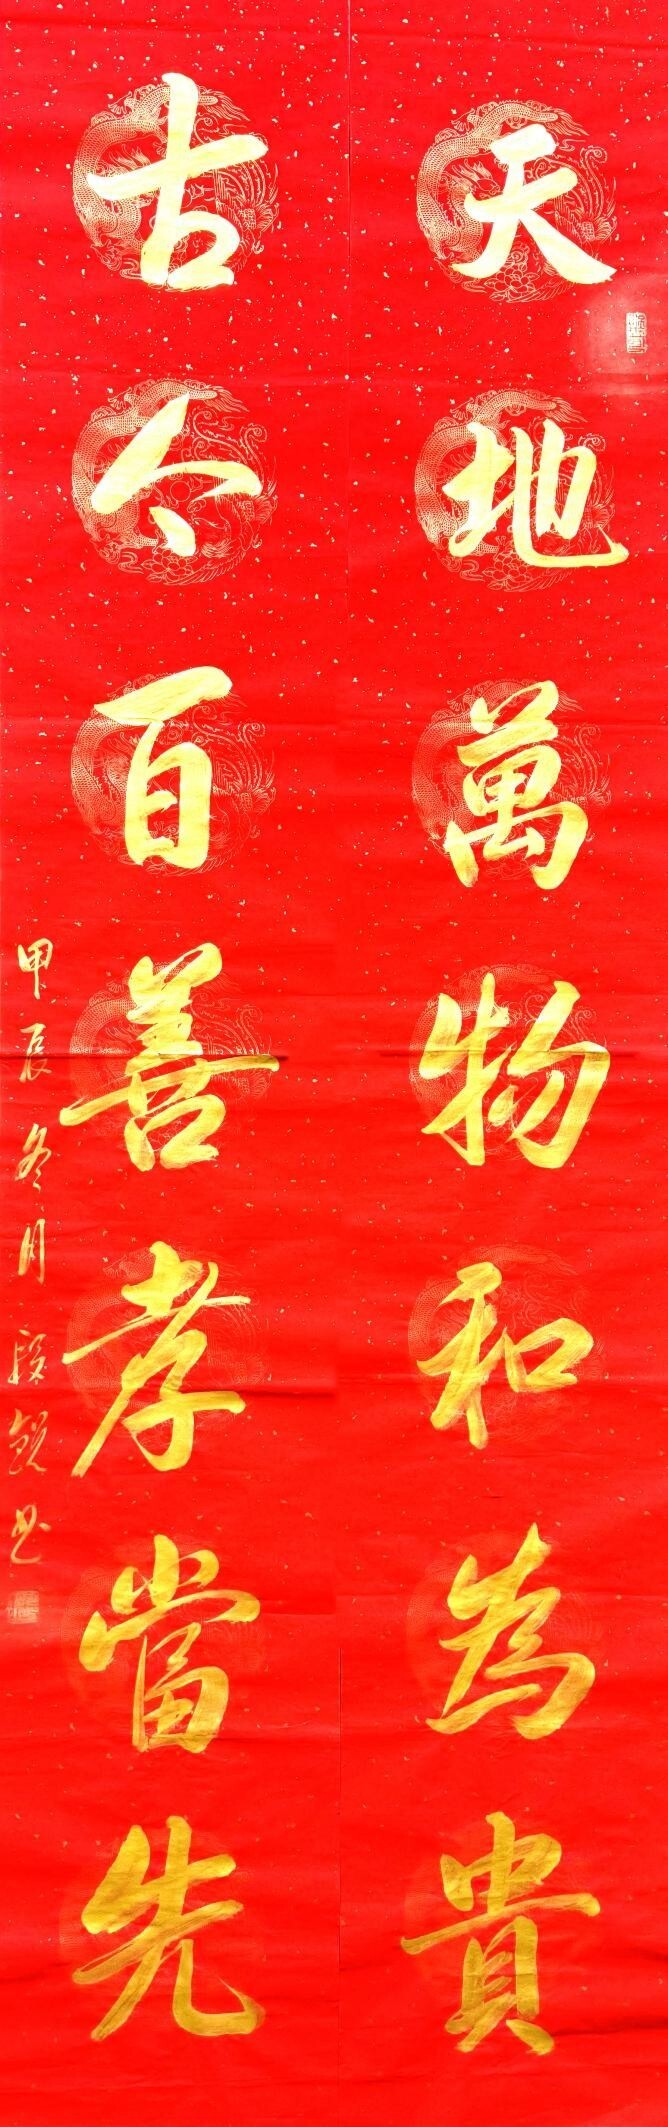 天地萬物和為貴
古今百善孝當先
甲辰冬月段銳書